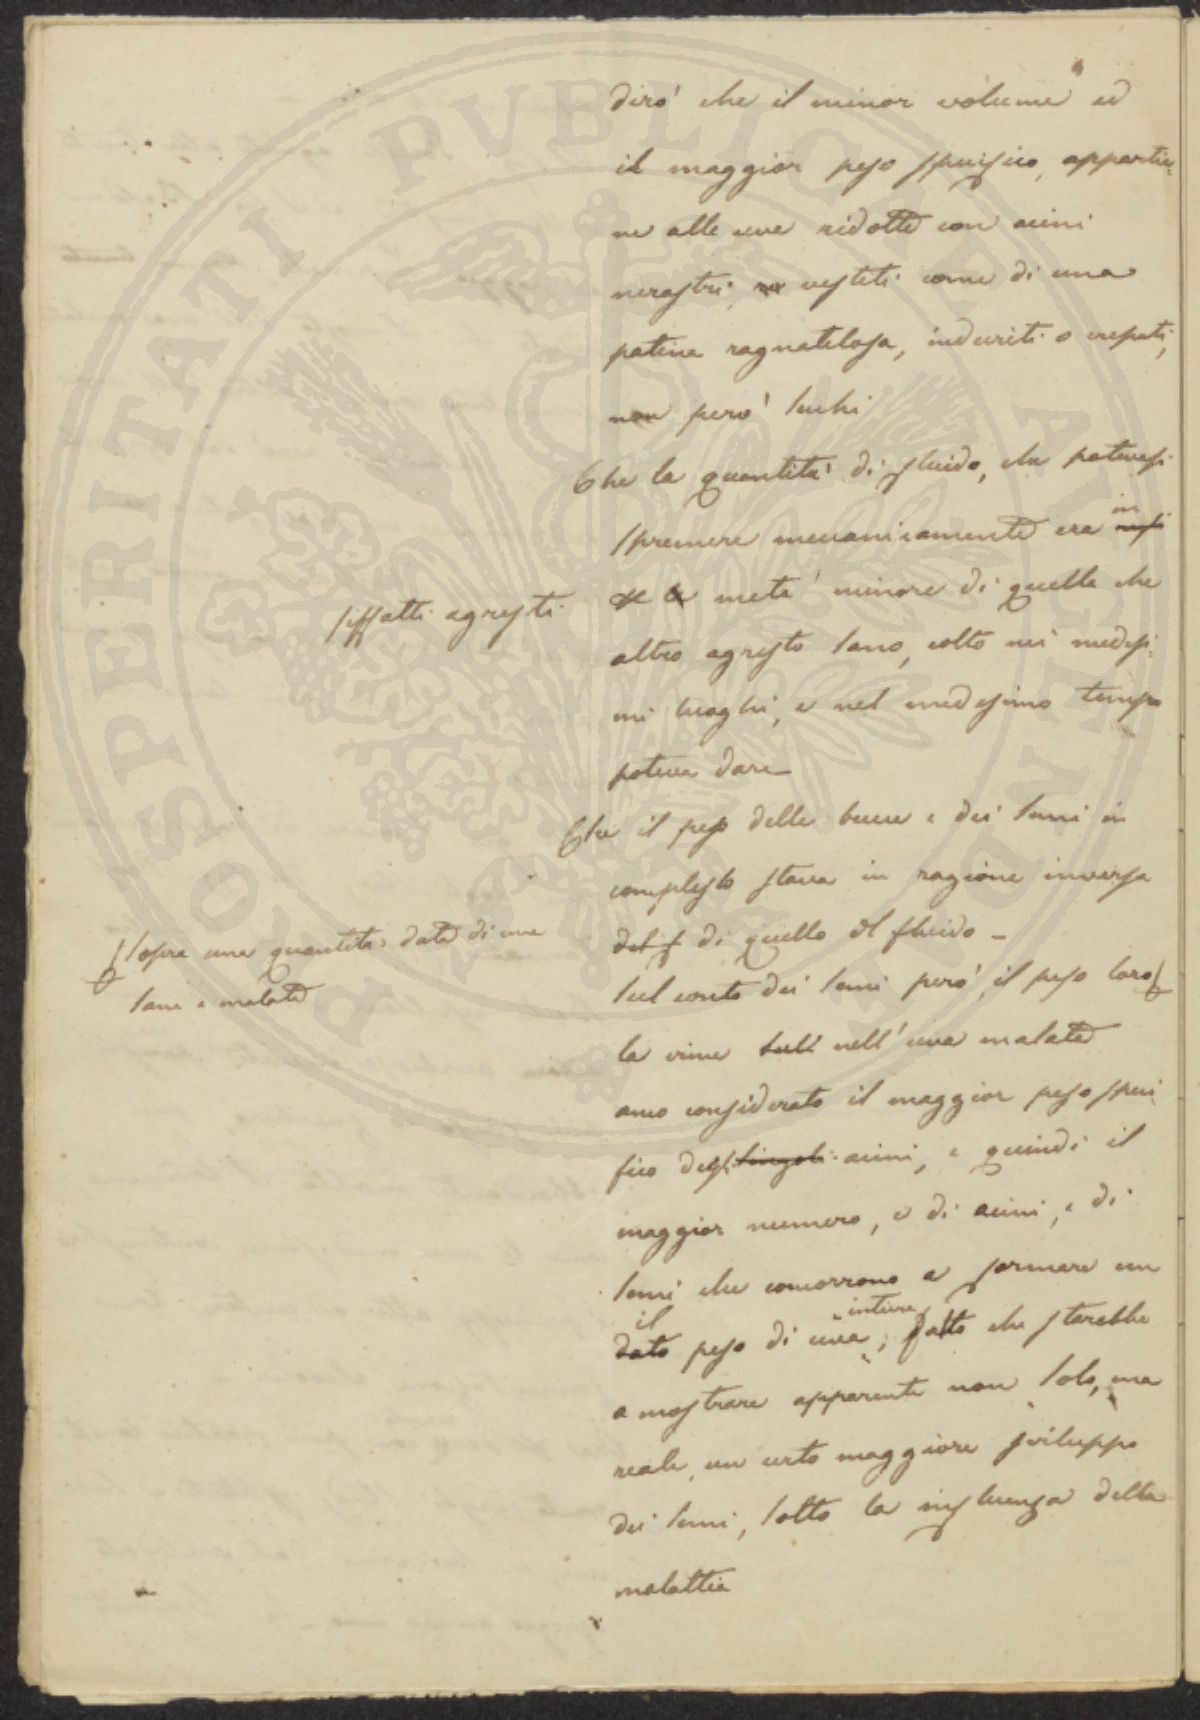 dirò che il minor volume ed
il maggior peso specifico, appartie-
ne alle uve ridotte con acini
nerastri, vestiti come di una
patina ragnatelosa, induriti o crepati,
non però secchi
Che la quantità di fluido, che potevasi
spremere meccanicamente era in
metà minore di quella che
siffatti agresti
altro agresto sano, colto nei medesi-
mi luoghi, e nel medesimo tempo
poteva dare_
Che il peso delle bucce e dei semi in
complesso stava in ragione inversa
del f di quello del fluido_
sopra una quantità data di uva
sana e malata
Sul conto dei semi però, il peso loro
la vince nell'uva malata
anco considerato il maggior peso speci
fico degli singoli acini, e quindi il
maggior numero, e di acini, e di
semi che concorrono a formare un
il
dato peso di uva, intiera, fatto che starebbe
a mostrare apparente non solo, ma
reale, un certo maggiore sviluppo
dei semi, sotto la influenza della
malattia
PROSPERITATI PUBLICAE AUGENDAE